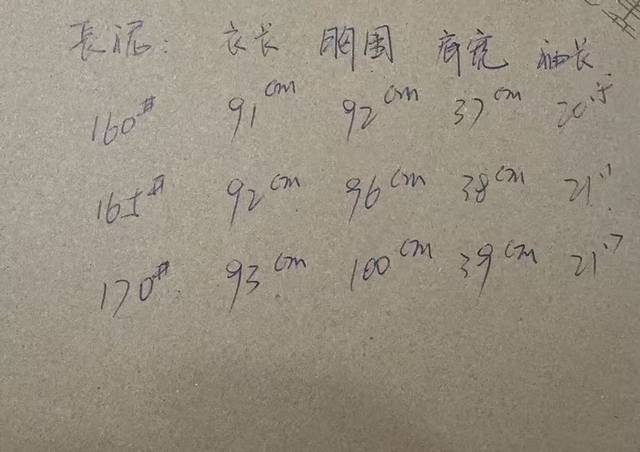 長泥: 衣长 胸围 肩宽 袖长
160# 91cm 92cm 37cm 20寸
165# 92cm 96cm 38cm 21"
170# 93cm 100cm 39cm 21"